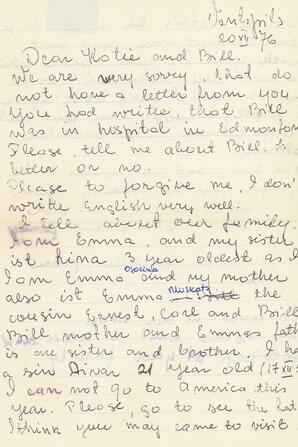 Ventspils
20 XII 76
Dear Katie and Bill.
We are very sorry, that do
not have a letter from you.
You had write, that Bill
was in hospital in Edmonton
Please, tell me about Bill. Is
better or no.
Please to forgive me, I don't
write English very well.
I tell about our family.
I am Emma, and my sister
ist Anna 3 year oldest as I
I am Emma Ozolina and my mother
also ist Emma the
cousin Ernest, Carl and Brill
Bill mother and Emmas fath
is are sister and brother. I ha
a sin Aivar 21 year old (17 XII
I can not go to America this
year. Please, go to see the
I think you may came to visit